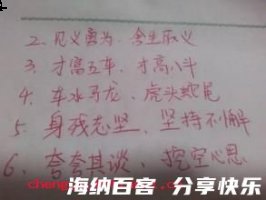 2、见义勇为、舍生取义
3、才高五车、才高八斗
4、车水马龙、虎头蛇尾
5、身残志坚、坚持不懈
6、夸夸其谈、挖空心思
海纳百客 分享快乐